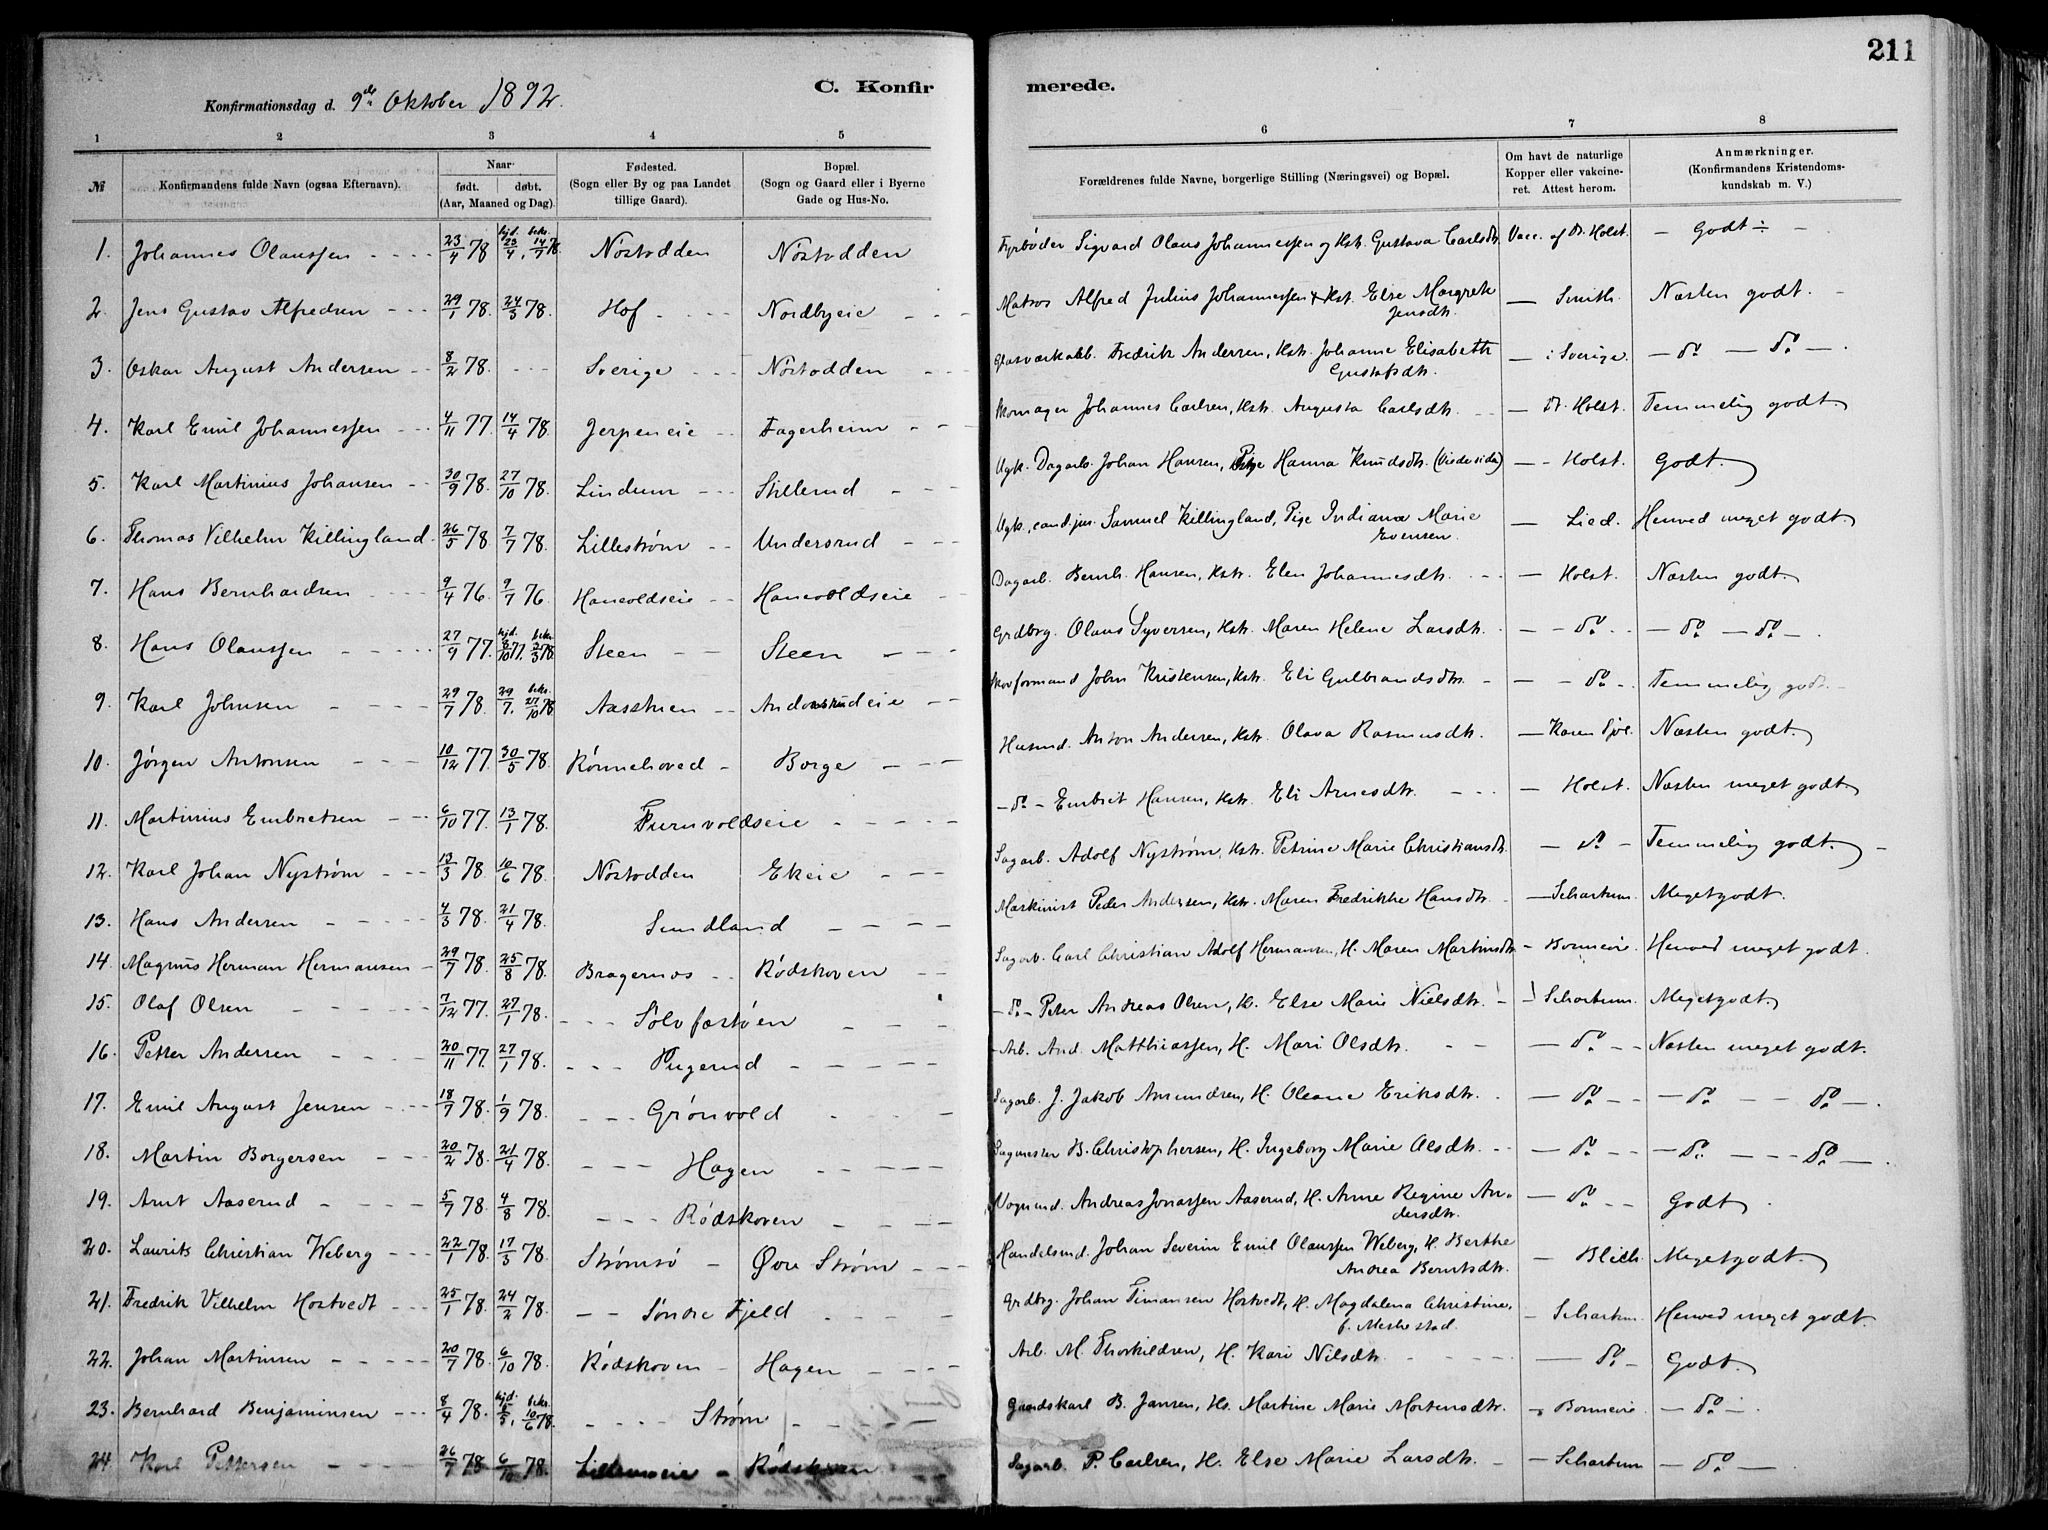 211
Konfirmationsdag d. 9de Oktober 1892.
C. Konfirmerede.
1 2 3 4 5 6 7 8
№ Konfirmandens fulde Navn (ogsaa Efternavn). Naar født. døbt. (Aar, Maaned og Dag). Fødested. (Sogn eller By og paa Landet tillige Gaard). Bopæl. (Sogn og Gaard eller i Byerne Gade og Hus-No. Forældrenes fulde Navne, borgerlige Stilling (Næringsvei) og Bopæl. Om havt de naturlige Kopper eller vakcineret. Attest herom. Anmærkninger. (Konfirmandens Kristendomskundskab m. V.)
1. Johannes Olaussen 23/4 78 hjd. 23/4, bekr. 14/7 78. Nöstodden Nöstodden Fyrböder Sigvard Olaus Johannessen og Kst. Gustava Carlsdtr. Vacc. af Dr. Holst. Godt ÷
2. Jens Gustav Alfredsen 29/1 78. 24/3 78. Hof Nordbyeie Matros Alfred Julius Johannessen & Kst. Else Margrete Jensdtr. — Smith. Næsten godt.
3. Oskar August Andersen 8/2 78. Sverige Nöstodden Glasværkarb. Fredrik Andersen, Kstr. Johanne Elisabeth Gustafsdtr. — i Sverige. — do — do —
4. Karl Emil Johannessen 4/11 77. 14/4 78. Jerpeneie Fagerheim Skomager Johannes Carlsen, Kstr. Augusta Carlsdtr. — Dr. Holst. Temmelig godt.
5. Karl Martinius Johansen 30/9 78. 27/10 78. Lindum Stillerud Ugk. Dagarb. Johan Hansen, Pige Hanna Knudsdtr. — Holst. Godt.
6. Thomas Vilhelm Killingland 26/5 78. 7/7 78. Lilleström Undersrud Ugk. cand. jur. Samuel Killingland, Pige Indiana Marie Evensen. — Lied. Henved meget godt.
7. Hans Bernhardsen 9/4 76. 9/7 76. Hanevoldseie Hanevoldseie Dagarb. Bernh. Hansen, Kstr. Elen Johannesdtr. — Holst. Næsten godt.
8. Hans Olaussen 27/9 77. hjd. 3/10 77. bekr. 3/3 78. Steen Steen Grdbrg. Olaus Syversen, Kstr. Maren Helene Larsdtr. — do — do — do —
9. Karl Johnsen 29/7 78. 29/7. bekr. 27/10 78. Aasstuen Andorsrudeie Skovformand John Kristensen, Kstr. Eli Gulbrandsdtr. — do — Temmelig godt.
10. Jörgen Antonsen 10/12 77. 30/5 78. Rönnehoved Borge Husmd. Anton Andersen, Kstr. Olava Rasmusdtr. — Karen Sjøl. Næsten godt.
11. Martinius Embretsen 6/10 77. 13/1 78. Furuvoldseie — do — Embret Hansen, Kstr. Eli Arnesdtr. — Holst. Næsten meget godt.
12. Karl Johan Nyström 13/3 78. 10/6 78. Nöstodden Ekeie Sagarb. Adolf Nyström, Kstr. Petrine Marie Christiansdtr. — do — Temmelig godt.
13. Hans Andersen 4/3 78. 21/4 78. Sundland Maskinist Peder Andersen, Kstr. Maren Fredrikke Hansdtr. — Schartum. Megetgodt.
14. Magnus Herman Hermansen 29/7 78. 25/8 78. Bragernæs Rödskoven Sagarb. Carl Christian Adolf Hermansen, H. Maren Martinsdtr. — Bonnevie. Henved meget godt.
15. Olaf Olsen 7/12 77. 27/1 78. Sölvfastöen — do — Peter Andreas Olsen, H. Else Marie Nielsdtr. — Schartum. Megetgodt.
16. Petter Andersen 20/11 77. 27/1 78. Pugerud Arb. And. Matthiassen, H. Mari Olsdtr. — do — Næsten meget godt.
17. Emil August Jensen 18/7 78. 1/9 78. Grönvold Sagarb. J. Jakob Amundsen, H. Oleane Eriksdtr. — do — do — do —
18. Martin Borgersen 20/2 78. 21/4 78. Hagen Sagmester B. Christophersen, H. Ingeborg Marie Olsdtr. — do — do — do —
19. Arnt Aaserud 5/7 78. 4/8 78. Rödskoven Vognmd. Andreas Jonassen Aaserud, H. Anne Regine Andersdtr. — do — Godt
20. Laurits Christian Weberg 22/1 78. 17/3 78. Strömsö Øvre Ström Handelsmd. Johan Severin Emil Olaussen Weberg, H. Berthe Andrea Berntsdtr. — Blich. Megetgodt.
21. Fredrik Vilhelm Hostvedt 25/1 78. 24/2 78. Söndre Fjeld Grdbrg. Johan Simansen Hostvedt, H. Magdalena Christine, f. Meshestad. — Schartum. Henved meget godt.
22. Johan Martinsen 20/7 78. 6/10 78. Rödskoven Hagen Arb. M. Thorkildsen, H. Kari Nilsdtr. — do — Godt.
23. Bernhard Benjaminsen 8/4 78. hjd. 5/5, bekr. 10/6 78. Ström Gaardskarl B. Jansen, H. Martine Marie Mortensdtr. — Bonnevie. — do —
24. Karl Pettersen 26/7 78. 6/10 78. Rödskoven Sagarb. P. Carlsen, H. Else Marie Larsdtr. — Schartum — do —